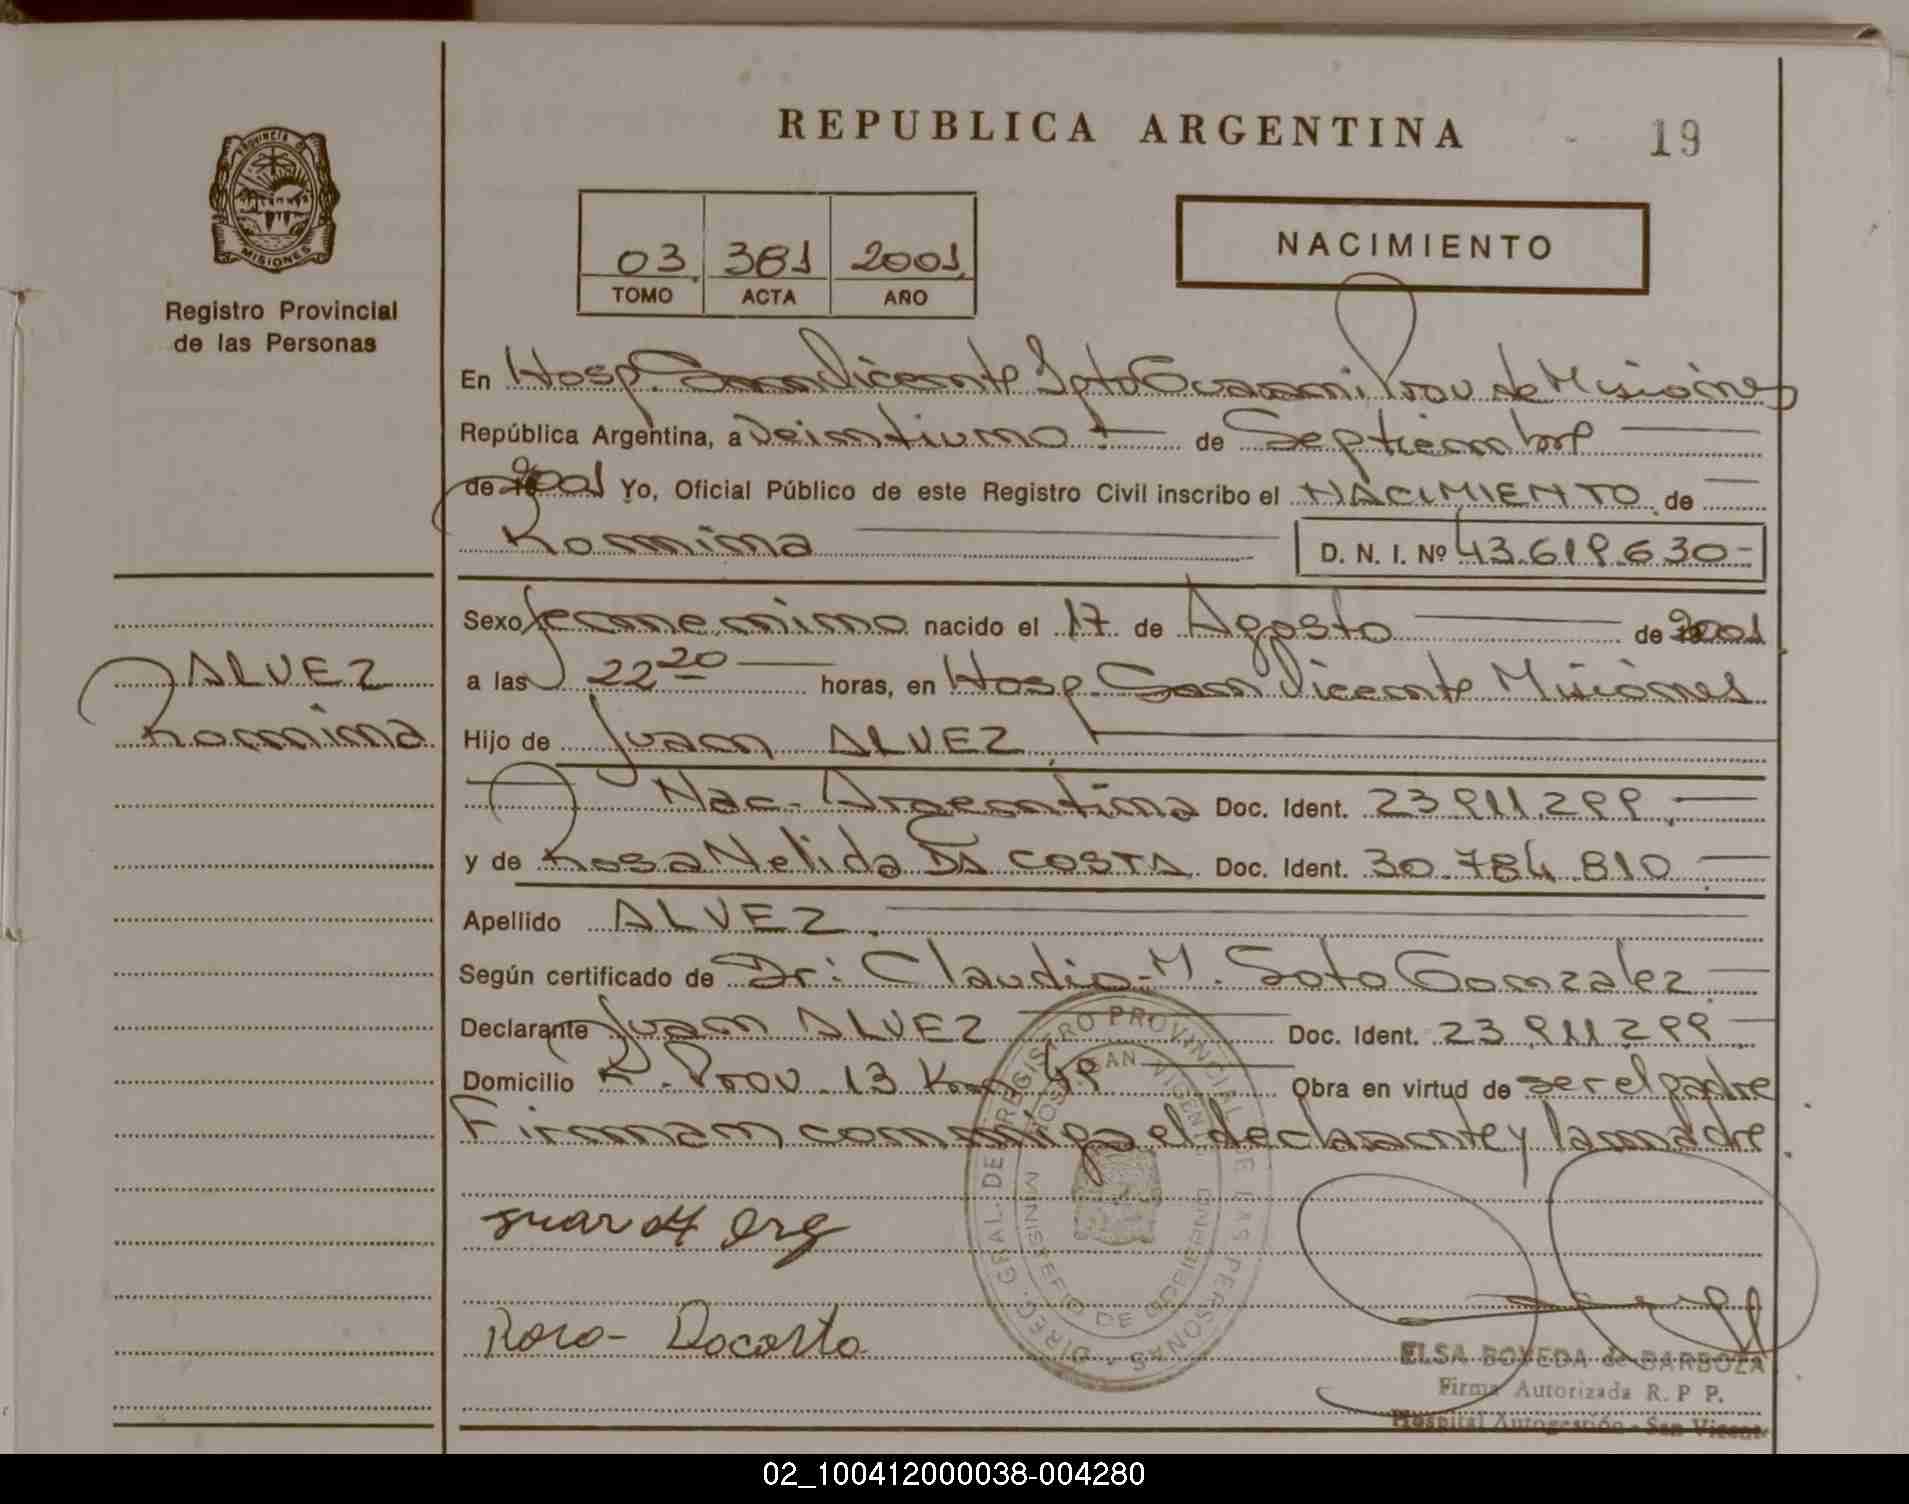 REPUBLICA ARGENTINA
19
PROVINCIA DE
MISIONES
Registro Provincial
de las Personas
03 381 2001
TOMO ACTA AÑO
NACIMIENTO
En Hosp. San Vicente Dpto Guarani Prov de Misiones
República Argentina, a Veintiuno de Septiembre
de 2001 Yo, Oficial Público de este Registro Civil inscribo el NACIMIENTO de
Romina D. N. I. Nº 43.619.630-
Sexo femenino nacido el 17 de Agosto de 2001
a las 22 20 horas, en Hosp. San Vicente Misiones
ALVEZ
Romina
Hijo de Juan ALVEZ
Nac. Argentina Doc. Ident. 23.911.299
y de Rosa Nelida DA COSTA Doc. Ident. 30.784.810
Apellido ALVEZ
Según certificado de Dr: Claudio M. Soto Gonzalez
Declarante Juan ALVEZ Doc. Ident. 23.911.299
Domicilio R. Prov. 13 Km 49 Obra en virtud de ser el padre
Firman conmigo el declarante y la madre
DIREC. GRAL. DEL REGISTRO PROVINCIAL DE LAS PERSONAS
HOSP. SAN VICENTE
MINISTERIO DE GOBIERNO
Roso- Docosta
ELSA BOVEDA de BARBOZA
Firma Autorizada R. P P.
Hospital Autogestión - San Vicente
02_100412000038-004280